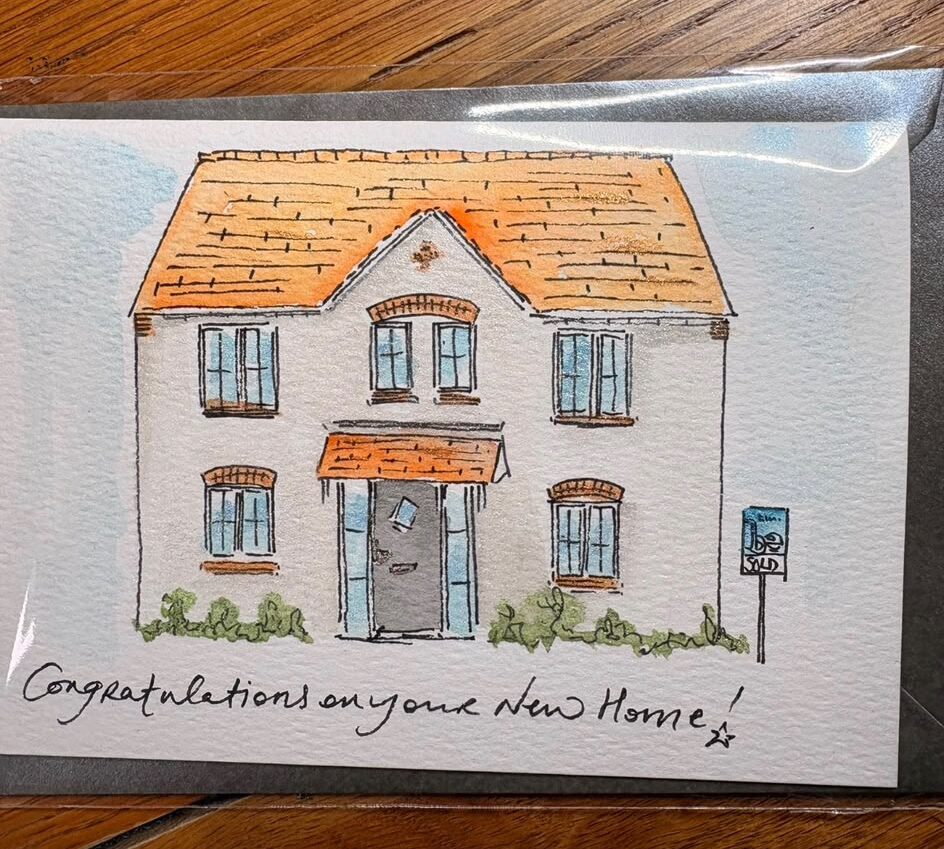 be
SOLD
Congratulations on your New Home!